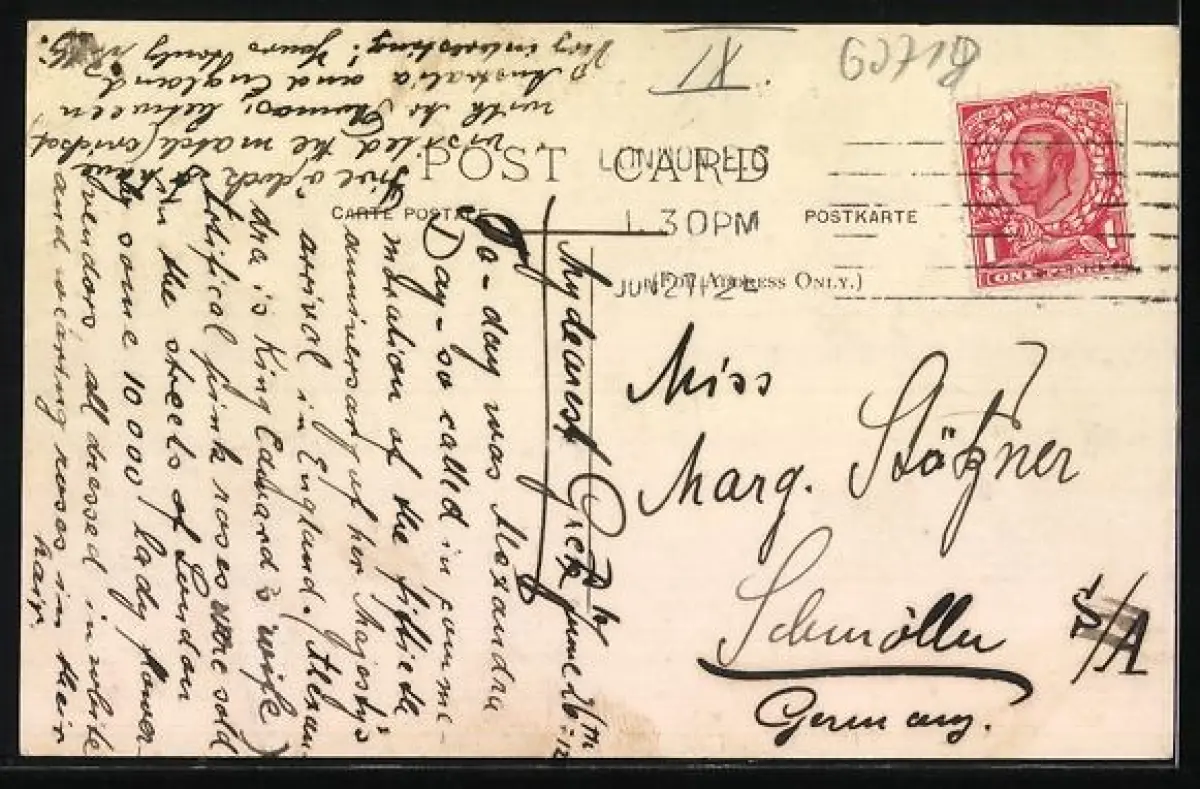 XI
POST CARD
CARTE POSTALE
POSTKARTE
(FOR ADDRESS ONLY.)
LONDON
1. 30 PM
JUN 27 12
ONE PENNY
1
1
Miss
Marg. Stötzner
Schmölln
S/A
Germany.
My dearest Gretl, June 26th - 12
To-day was Alexandra
Day - so called in comme-
moration of the fiftieth
anniversary of her Majesty's
arrival in England. (Alexan-
dra is King Edward's wife)
Artificial pink roses were sold
in the streets of London
by some 10000 lady flower
vendors all dressed in white
and wearing roses in their
hair.
Five o'clock I have
visited the match (cricket)
with between
Australia and England
Very interesting! Yours